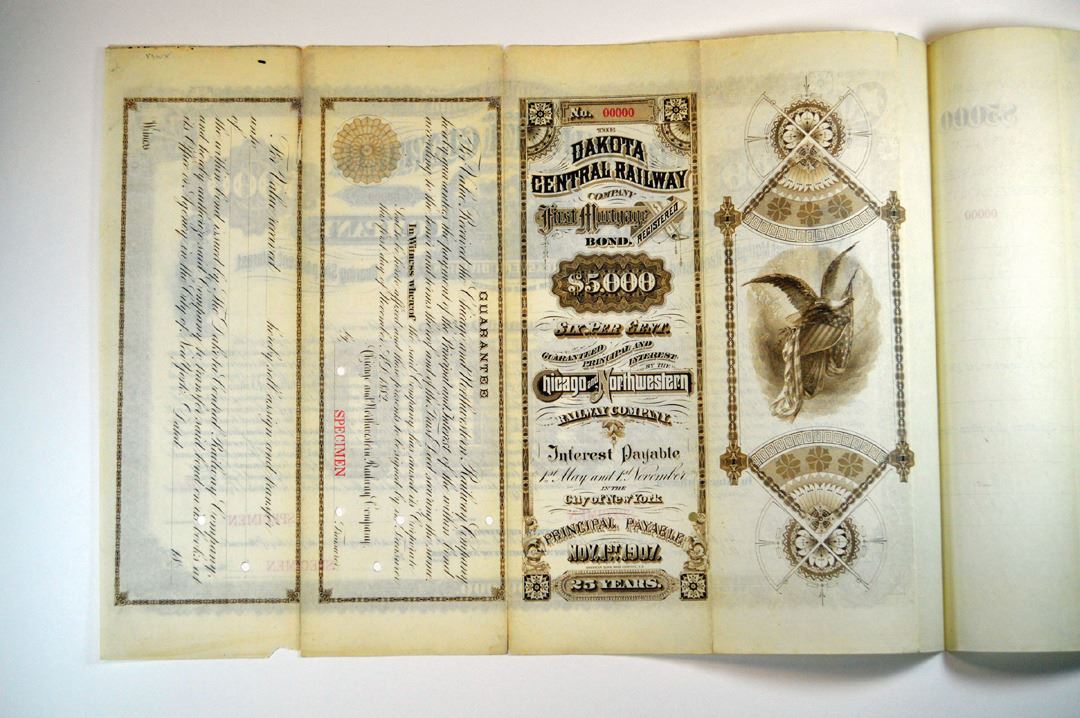 No. 00000
THE
DAKOTA
CENTRAL RAILWAY
COMPANY
First Mortgage
REGISTERED
BOND.
$5.000
SIX PER CENT.
GUARANTEED
PRINCIPAL AND
INTEREST
BY THE
Chicago and Northwestern
RAILWAY COMPANY.
Interest Payable
1st May and 1st November
IN THE
City of New York
PRINCIPAL PAYABLE
NOV. 1st 1907.
25 YEARS.
GUARANTEE
For Value Received the Chicago and Northwestern Railway Company
hereby guarantees the payment of the Principal and Interest of the within Bond
according to the tenor and terms thereof and of the Trust Deed securing the same.
In Witness whereof the said Company has caused its Corporate
Seal to be hereto affixed and these presents to be signed by its Treasurer
this first day of November A.D. 1882.
Chicago and Northwestern Railway Company,
By
Treasurer
SPECIMEN
For Value received hereby sell, assign and transfer
unto
the within Bond issued by The Dakota Central Railway Company,
and hereby authorize said Company to transfer said bond on its books at
its Office or Agency in the City of New York. Dated 18
Witness
SPECIMEN
SPECIMEN
$5000
00000